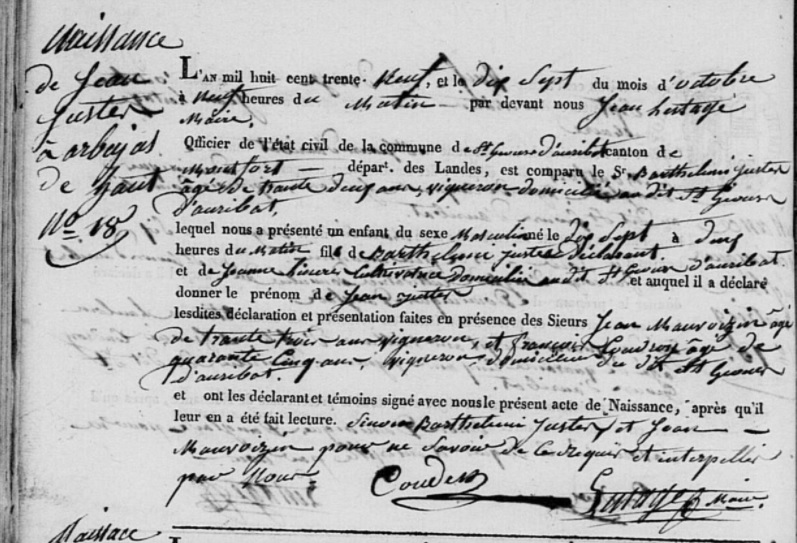 Naissance
de Jean
Juster
à arbojas
de haut
No. 18
L'AN mil huit cent trente-Neuf, et le dix Sept du mois d'octobre
à Neuf heures du Matin par devant nous Jean Lartage
Maire,
Officier de l'état civil de la commune de St. Geours d'auribat canton de
Montfort départ. des Landes, est comparu le Sr. Barthelemi Juster
âgé de trente deux ans, vigneron domicilié au dit St Geours
d'auribat,
lequel nous a présenté un enfant du sexe Masculin né le dix Sept à deux
heures du Matin fils de Barthelemi juster déclarant.
et de Jeanne cultivatrice domicilié au dit St Geours d'auribat.
et auquel il a déclaré
donner le prénom de Jean juster
lesdites déclaration et présentation faites en présence des Sieurs Jean Mauvoizin âgé
de trente trois ans vigneron, et françois âgé de
quarante Cinq ans, vigneron, domiciliés du dit St Geours
d'auribat.
et ont les déclarant et témoins signé avec nous le présent acte de Naissance, après qu'il
leur en a été fait lecture. Sinon Barthelemi Juster et Jean
Mauvoizin pour ne Savoir de ce requis et interpellés
par Nous.
Naissace